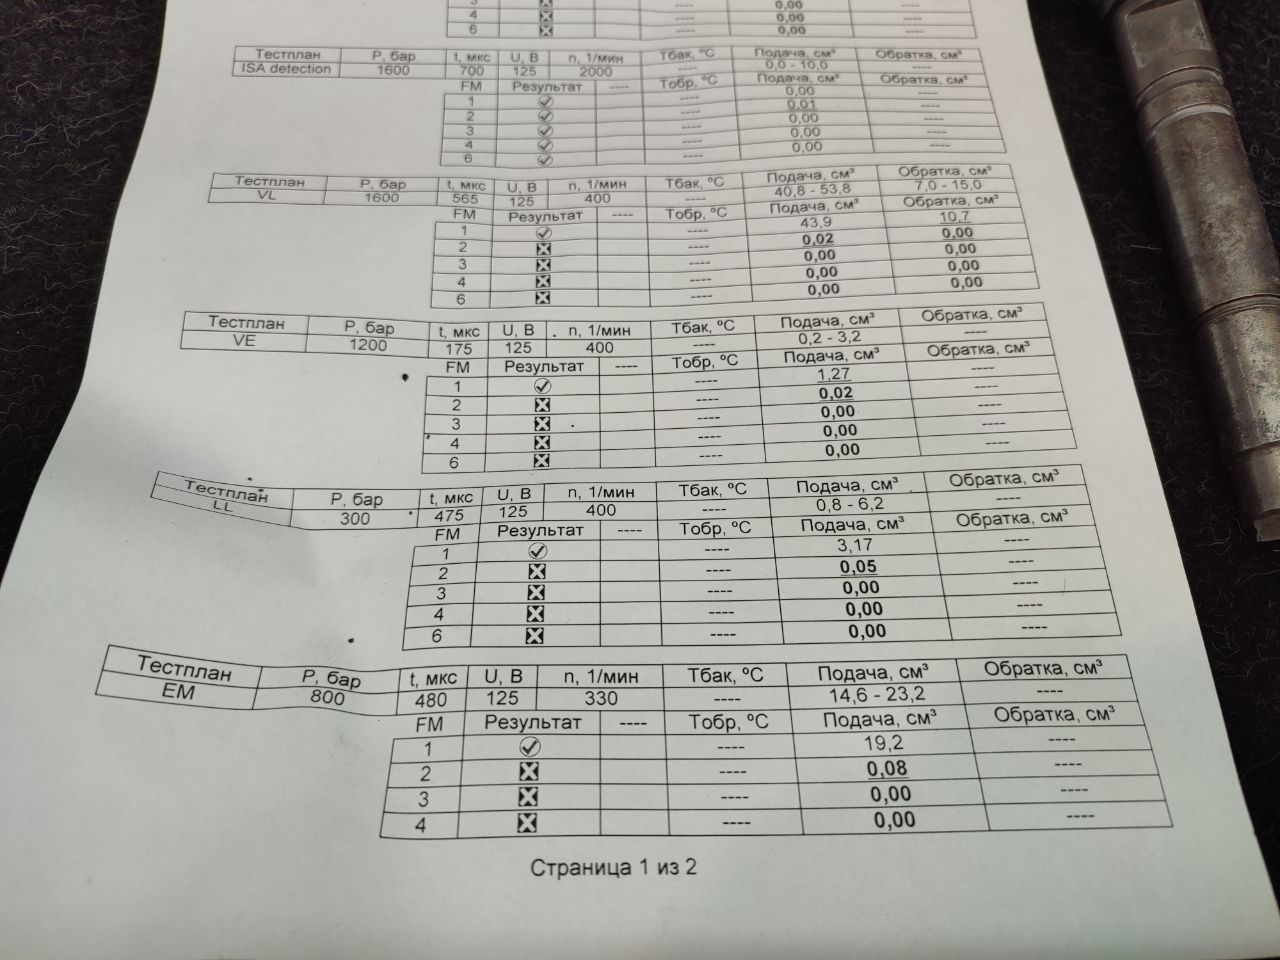 3 ---- 0,00 ----
4 ---- 0,00 ----
6 ---- 0,00 ----
Тестплан P, бар t, мкс U, В n, 1/мин Тбак, ºС Подача, см³ Обратка, см³
ISA detection 1600 700 125 2000 ---- 0,0 - 10,0 ----
FM Результат ---- Тобр, ºС Подача, см³ Обратка, см³
1 ---- 0,00 ----
2 ---- 0,01 ----
3 ---- 0,00 ----
4 ---- 0,00 ----
6 ---- 0,00 ----
Тестплан P, бар t, мкс U, В n, 1/мин Тбак, ºС Подача, см³ Обратка, см³
VL 1600 565 125 400 ---- 40,8 - 53,8 7,0 - 15,0
FM Результат ---- Тобр, ºС Подача, см³ Обратка, см³
1 ---- 43,9 10,7
2 ---- 0,02 0,00
3 ---- 0,00 0,00
4 ---- 0,00 0,00
6 ---- 0,00 0,00
Тестплан P, бар t, мкс U, В n, 1/мин Тбак, ºС Подача, см³ Обратка, см³
VE 1200 175 125 400 ---- 0,2 - 3,2 ----
FM Результат ---- Тобр, ºС Подача, см³ Обратка, см³
1 ---- 1,27 ----
2 ---- 0,02 ----
3 ---- 0,00 ----
4 ---- 0,00 ----
6 ---- 0,00 ----
Тестплан P, бар t, мкс U, В n, 1/мин Тбак, ºС Подача, см³ Обратка, см³
LL 300 475 125 400 ---- 0,8 - 6,2 ----
FM Результат ---- Тобр, ºС Подача, см³ Обратка, см³
1 ---- 3,17 ----
2 ---- 0,05 ----
3 ---- 0,00 ----
4 ---- 0,00 ----
6 ---- 0,00 ----
Тестплан P, бар t, мкс U, В n, 1/мин Тбак, ºС Подача, см³ Обратка, см³
EM 800 480 125 330 ---- 14,6 - 23,2 ----
FM Результат ---- Тобр, ºС Подача, см³ Обратка, см³
1 ---- 19,2 ----
2 ---- 0,08 ----
3 ---- 0,00 ----
4 ---- 0,00 ----
Страница 1 из 2